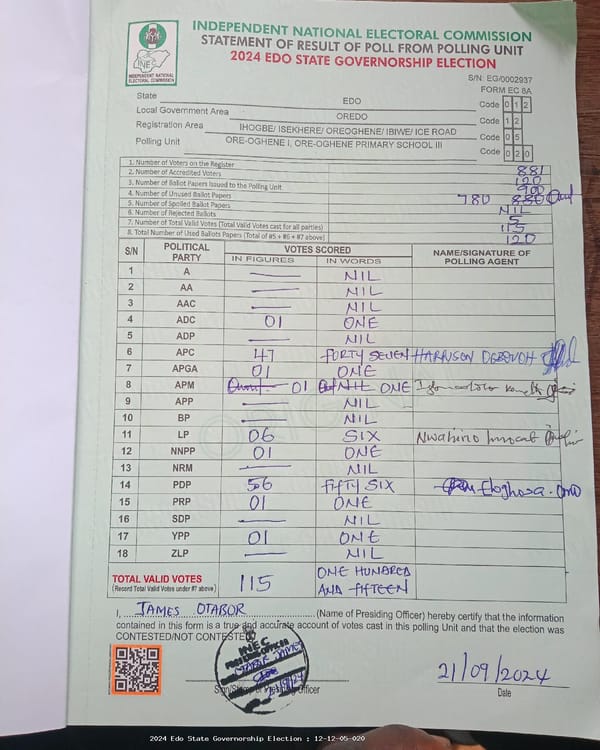 INDEPENDENT NATIONAL ELECTORAL COMMISSION
STATEMENT OF RESULT OF POLL FROM POLLING UNIT
2024 EDO STATE GOVERNORSHIP ELECTION
INEC
INDEPENDENT NATIONAL ELECTORAL COMMISSION
S/N: EG/0002937
FORM EC 8A
State EDO Code 0 1 2
Local Government Area OREDO Code 1 2
Registration Area IHOGBE/ ISEKHERE/ OREOGHENE/ IBIWE/ ICE ROAD Code 0 5
Polling Unit ORE-OGHENE I, ORE-OGHENE PRIMARY SCHOOL III Code 0 2 0
1. Number of Voters on the Register 881
2. Number of Accredited Voters 120
3. Number of Ballot Papers Issued to the Polling Unit 900
4. Number of Unused Ballot Papers 780 880
5. Number of Spoiled Ballot Papers NIL
6. Number of Rejected Ballots 5
7. Number of Total Valid Votes (Total Valid Votes cast for all parties) 115
8. Total Number of Used Ballots Papers (Total of #5 + #6 + #7 above) 120
S/N POLITICAL PARTY VOTES SCORED NAME/SIGNATURE OF POLLING AGENT
IN FIGURES IN WORDS
1 A — NIL
2 AA — NIL
3 AAC — NIL
4 ADC 01 ONE
5 ADP — NIL
6 APC 47 FORTY SEVEN HARRISON
7 APGA 01 ONE
8 APM 01 NIL ONE
9 APP — NIL
10 BP — NIL
11 LP 06 SIX
12 NNPP 01 ONE
13 NRM — NIL
14 PDP 56 FIFTY SIX Eloghosa
15 PRP 01 ONE
16 SDP — NIL
17 YPP 01 ONE
18 ZLP — NIL
TOTAL VALID VOTES 115 ONE HUNDRED AND FIFTEEN
(Record Total Valid Votes under #7 above)
I, JAMES OTABOR (Name of Presiding Officer) hereby certify that the information
contained in this form is a true and accurate account of votes cast in this polling Unit and that the election was
CONTESTED/NOT CONTESTED
INEC
PRESIDING OFFICER
OTABOR JAMES
21/9/24
Sign/Stamp of Presiding Officer
21/09/2024
Date
2024 Edo State Governorship Election : 12-12-05-020